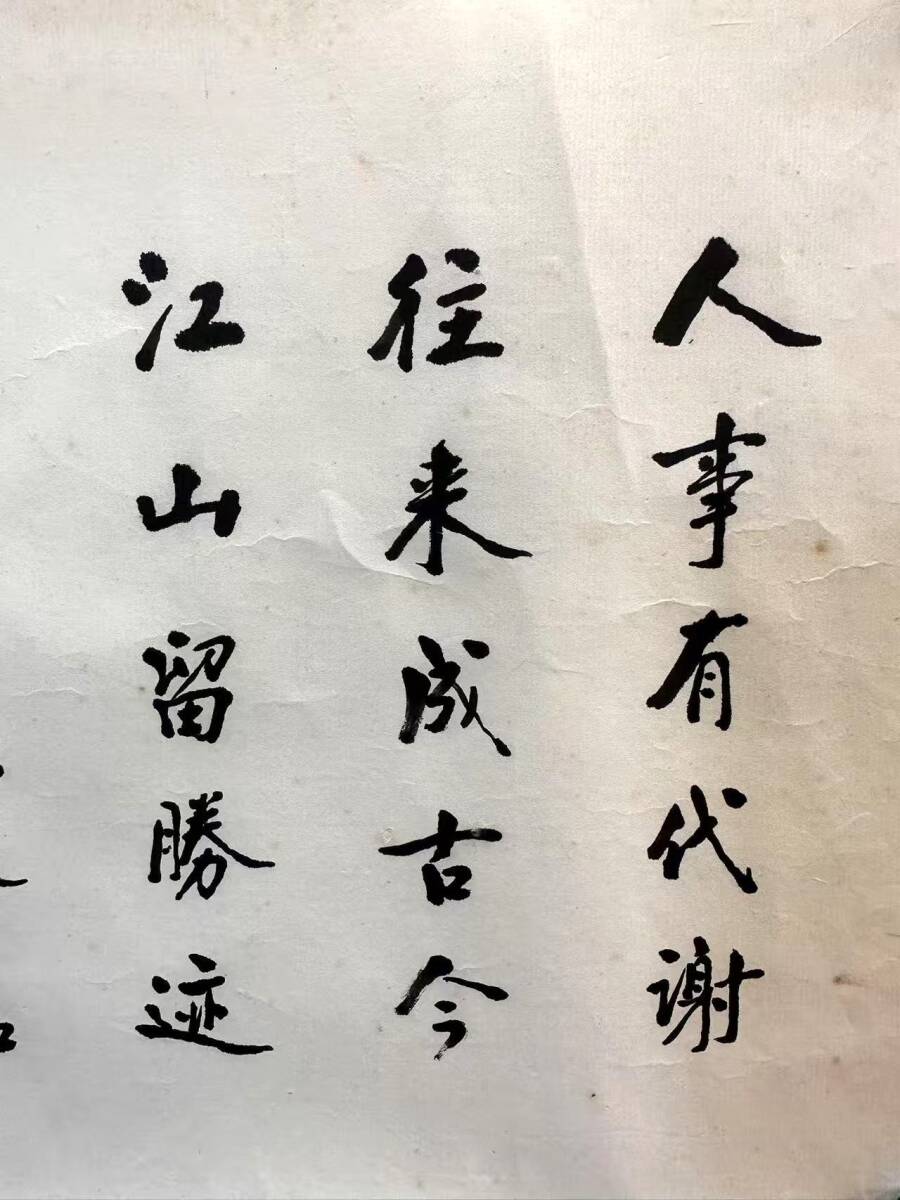 人事有代谢
往来成古今
江山留勝迹